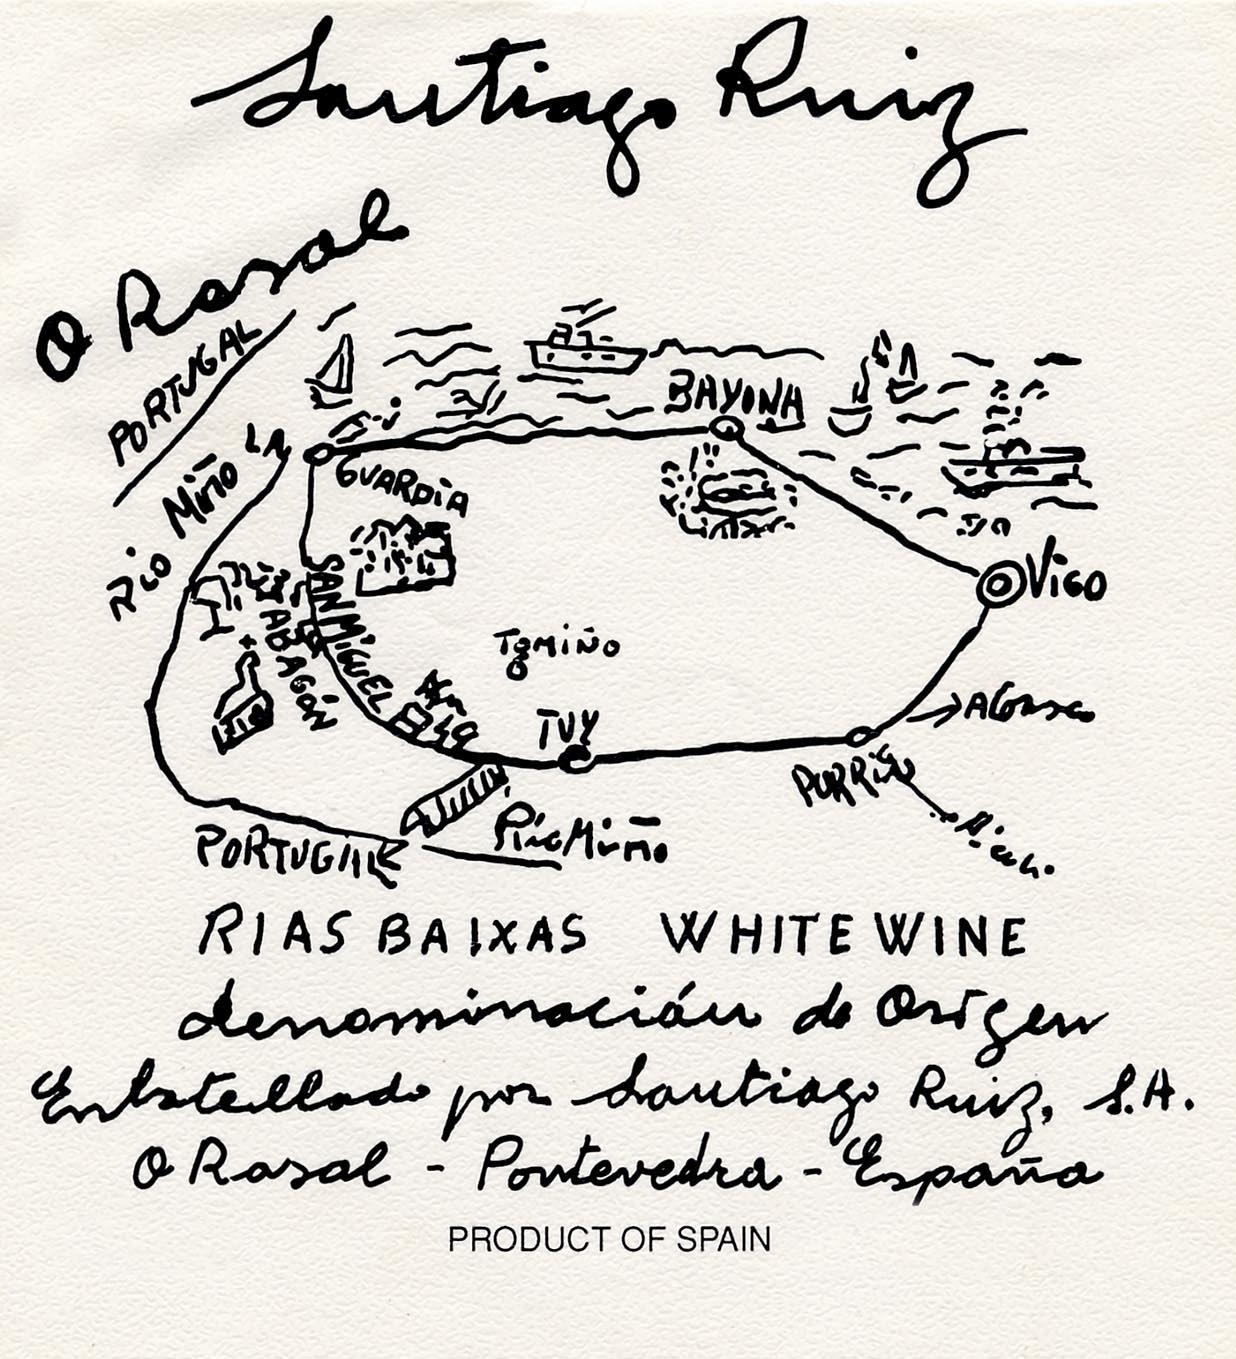 Santiago Ruiz
O Rosal
PORTUGAL
RIO MIÑO
LA GUARDIA
BAYONA
VIGO
SAN MIGUEL
TABAGÓN
TOMIÑO
TUY
PORRIÑO
PORTUGAL
Río Miño
RIAS BAIXAS WHITE WINE
denominación de Origen
Embotellado por Santiago Ruiz, S.A.
O Rosal - Pontevedra - España
PRODUCT OF SPAIN